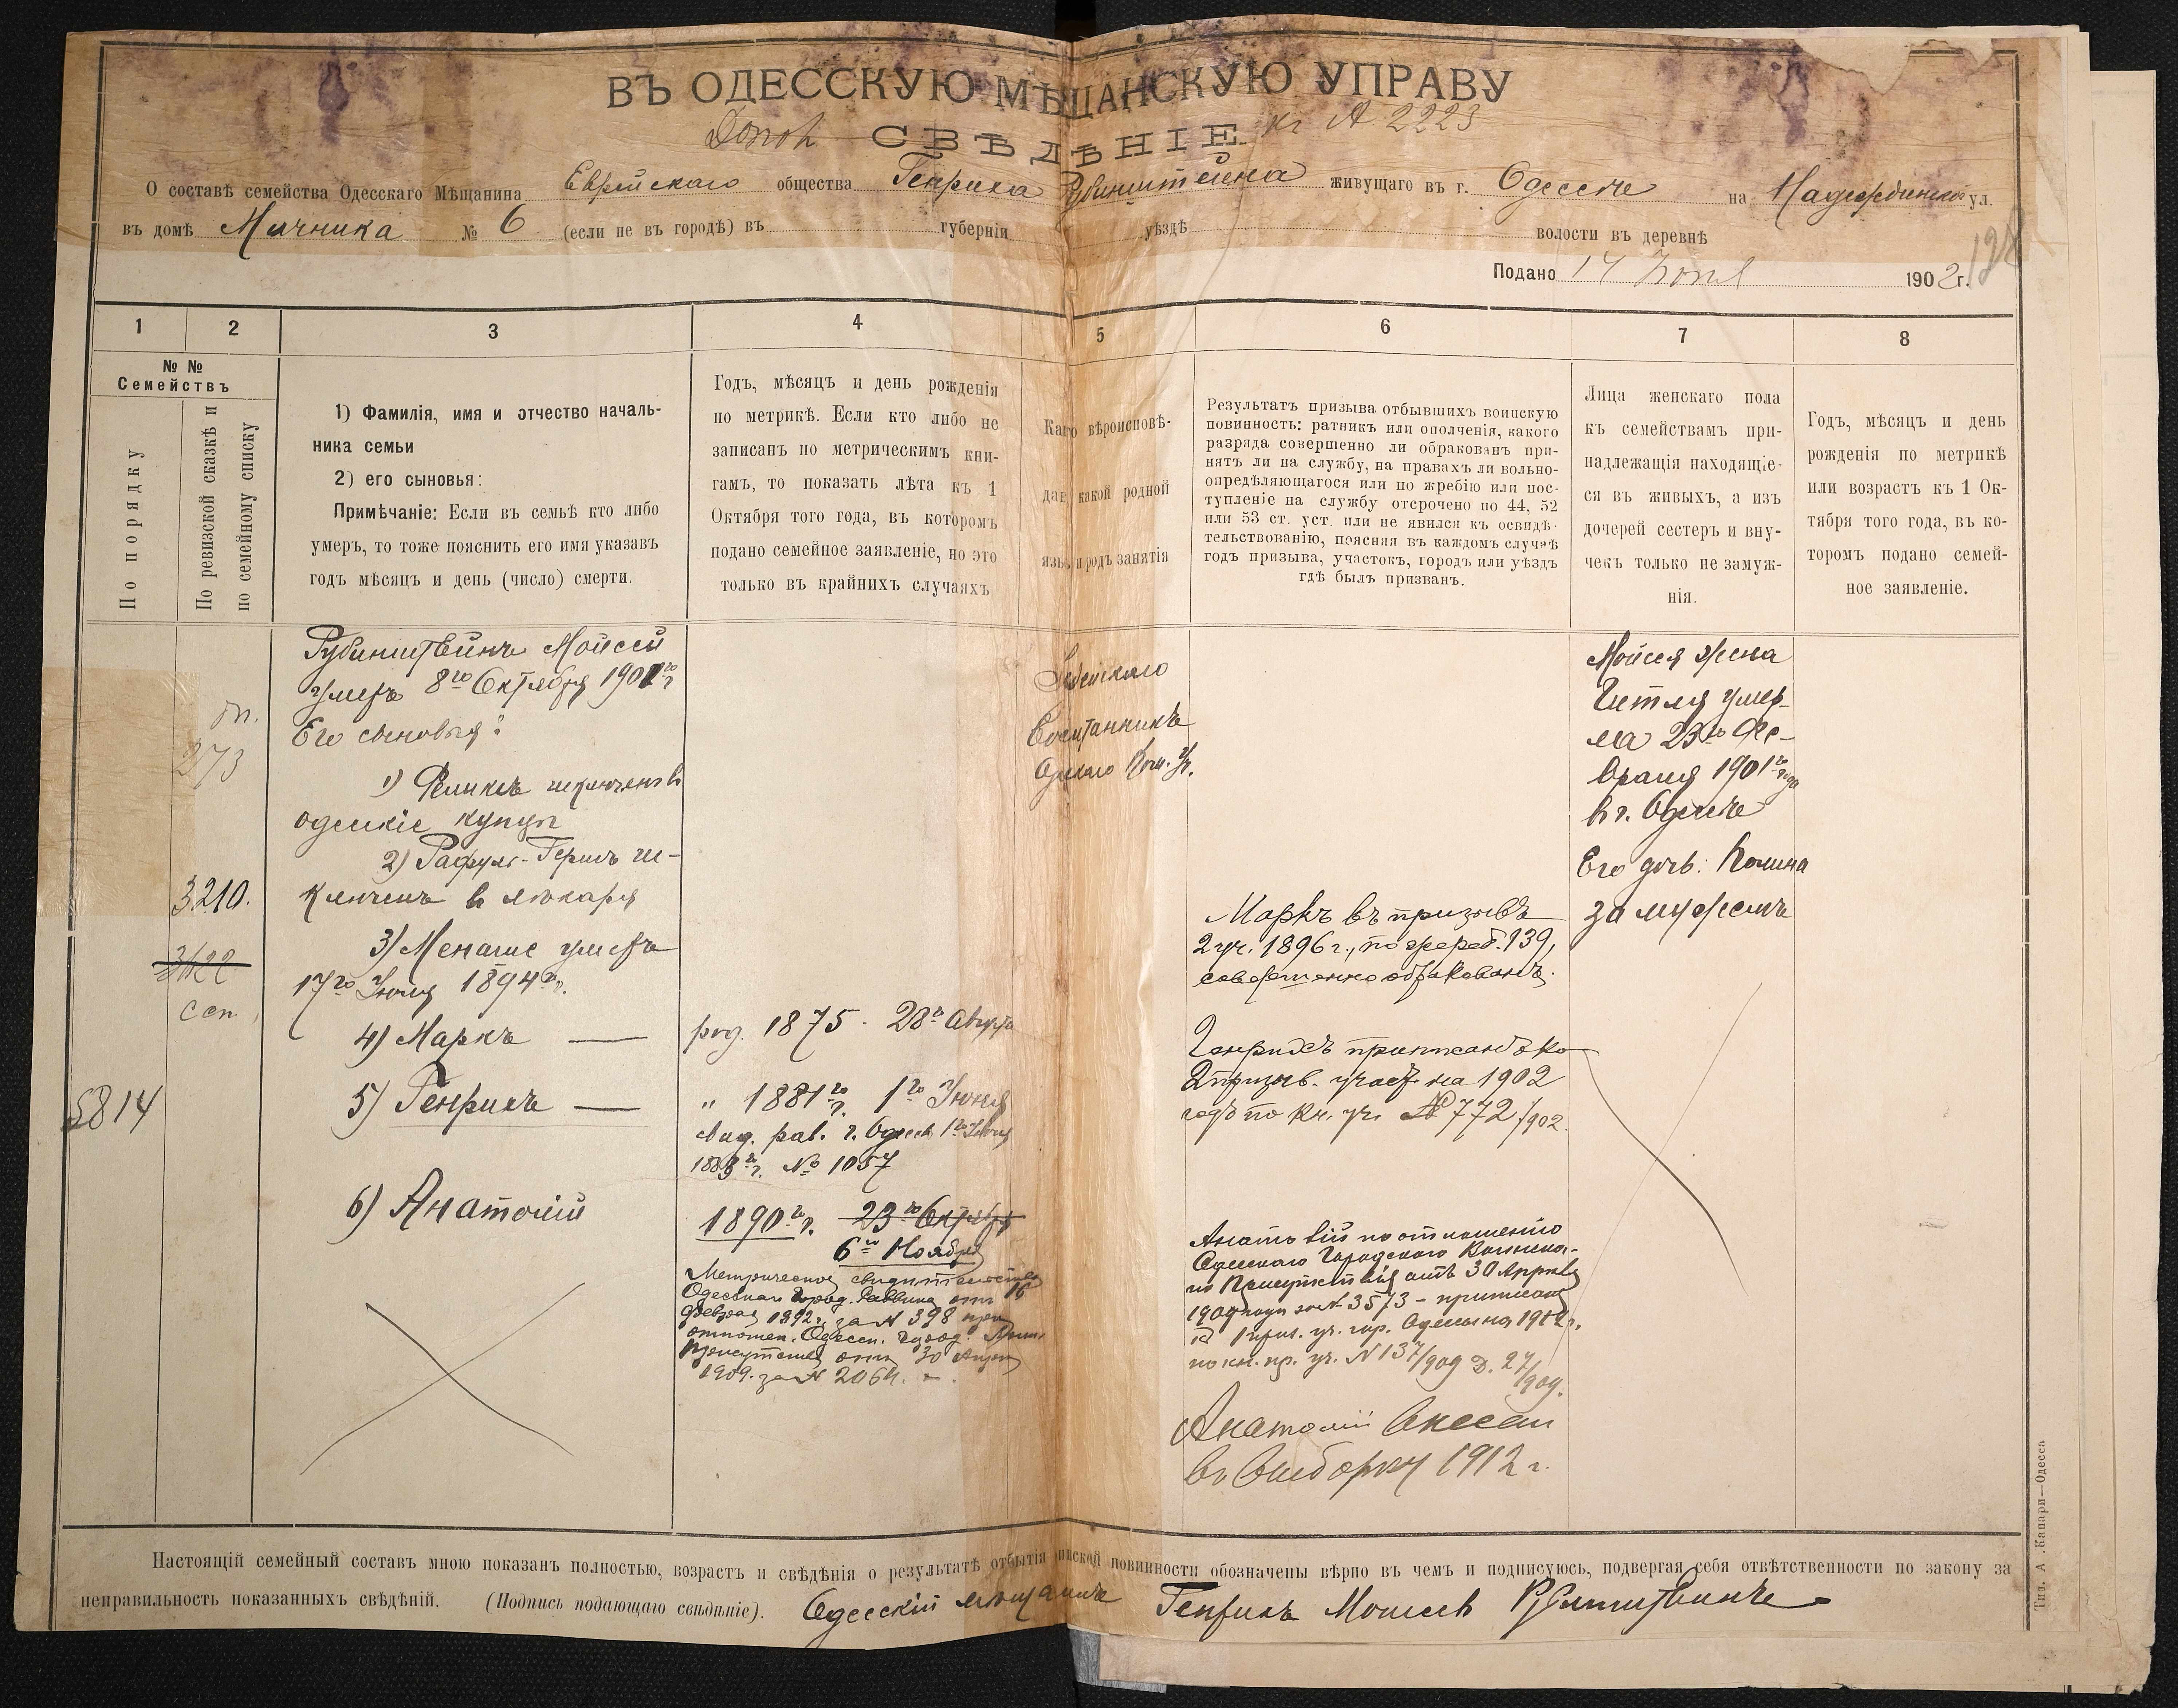 ВЪ ОДЕССКУЮ МѢЩАНСКУЮ УПРАВУ
СВѢДѢНІЕ
къ № 2223
О составѣ семейства Одесскаго Мѣщанина Еврейскаго общества Генриха Рубинштейна живущаго въ г. Одессѣ на Надеждинской ул.
въ домѣ № 6 (если не въ городѣ) въ губерніи уѣздѣ волости въ деревнѣ
Подано 14 Іюня 1902 г.
1 2 3 4 5 6 7 8
№ №
Семействъ
По порядку
По ревизской сказкѣ и
по семейному списку
1) Фамилія, имя и отчество началь-
ника семьи
2) его сыновья:
Примѣчаніе: Если въ семьѣ кто либо
умеръ, то тоже пояснить его имя указавъ
годъ мѣсяцъ и день (число) смерти.
Годъ, мѣсяцъ и день рожденія
по метрикѣ. Если кто либо не
записанъ по метрическимъ кни-
гамъ, то показать лѣта къ 1
Октября того года, въ которомъ
подано семейное заявленіе, но это
только въ крайнихъ случаяхъ
вѣроисповѣ-
какой родной
и родъ занятія
Результатъ призыва отбывшихъ воинскую
повинность: ратникъ или ополченія, какого
разряда совершенно ли обракованъ при-
нятъ ли на службу, на правахъ ли вольно-
опредѣляющагося или по жребію или пос-
тупленіе на службу отсрочено по 44, 52
или 53 ст. уст. или не явился къ освидѣ-
тельствованію, поясняя въ каждомъ случаѣ
годъ призыва, участокъ, городъ или уѣздъ
гдѣ былъ призванъ.
Лица женскаго пола
къ семействамъ при-
надлежащія находящіе-
ся въ живыхъ, а изъ
дочерей сестеръ и вну-
чекъ только не замуж-
нія.
Годъ, мѣсяцъ и день
рожденія по метрикѣ
или возрастъ къ 1 Ок-
тября того года, въ ко-
торомъ подано семей-
ное заявленіе.
273
3210.
3422
5814
Рубинштейнъ Мойсей
умеръ 8го Октября 1901го г.
Его сыновья:
1) Феликсъ исключенъ въ
одесскіе купцы
2) Рафулъ-Гершъ ис-
ключенъ в лѣкаря
3) Менаше умеръ
17го Іюля 1894 г.
4) Маркъ —
5) Генрихъ —
6) Анатолій
род. 1875 28го Августа
" 1881го г. 1го Іюня
№ 1057
1890го г. 23го Октября
6го Ноября
Метрическое свидѣтельство
Одесскаго Город. Раввина отъ 16
февраля 1892 г. за № 398 при
отношен. Одесск. Город.
Присутствія отъ 30 Апрѣля
1909. за № 2064.
Маркъ въ призывъ
2 уч. 1896 г., по жереб. 139,
совершенно обракованъ.
Генрихъ приписанъ ко
2 призыв. участ. на 1902
годъ по кн. уч. № 772/902.
Анатолій по отношенію
Одесскаго Городского Воинска-
го Присутствія отъ 30 Апрѣля
1909 года за № 3573 - приписанъ
къ 1 приз. уч. гор. Одессы на 1912 г.
по кн. пр. уч. № 137/909 Д. 27/909.
Анатолій внесен
въ выборку 1912 г.
Мойсея жена
умер-
ла 23го Фе-
враля 1901го года
въ г. Одессѣ
Его дочь: Полина
замужемъ
Настоящій семейный составъ мною показанъ полностью, возрастъ и свѣдѣнія о результатѣ отбытія воинской повинности обозначены вѣрно въ чемъ и подписуюсь, подвергая себя отвѣтственности по закону за
неправильность показанныхъ свѣдѣній. (Подпись подающаго свѣдѣніе). Одесскій мѣщанинъ Генрихъ Моисеев Рубинштейнъ
Тип. А. Капари—Одесса